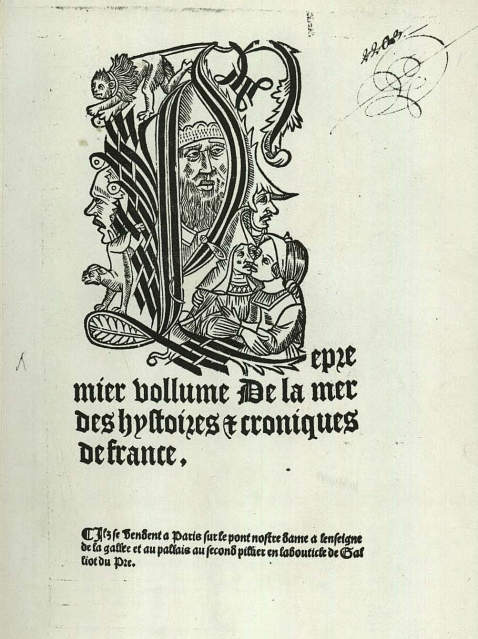 Le pre
mier vollume De la mer
des hystoires & croniques
de france.
¶ Ilz se vendent a Paris sur le pont nostre dame a lenseigne
de la gallee et au pallais au second pillier en la bouticle de Gal
liot du Pre.